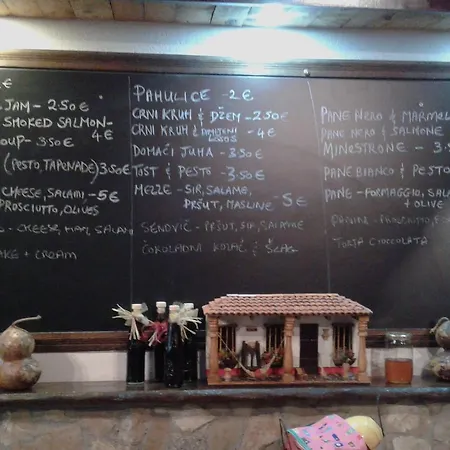 €
JAM - 2.50€
SMOKED SALMON -
4€
OUP - 3.50€
(PESTO, TAPENADE) 3.50€
CHEESE, SALAMI - 5€
PROSCIUTTO, OLIVES
- CHEESE, HAM, SALAMI
AKE + CREAM
PAHULICE - 2€
CRNI KRUH & DŽEM - 2.50€
CRNI KRUH & DIMLJENI LOSOS - 4€
DOMAĆI JUHA - 3.50€
TOST & PESTO - 3.50€
MEZZE - SIR, SALAME,
PRŠUT, MASLINE - 5€
SENDVIČ - PRŠUT, SIR, SALAME
ČOKOLADNI KOLAČ & ŠLAG
PANE NERO & MARMEL
PANE NERO & SALMONE
MINESTRONE - 3.5
PANE BIANCO & PESTO
PANE - FORMAGGIO, SALA
+ OLIVE
PANINI - PROSCIUTTO, FO
TORTA CIOCCOLATA